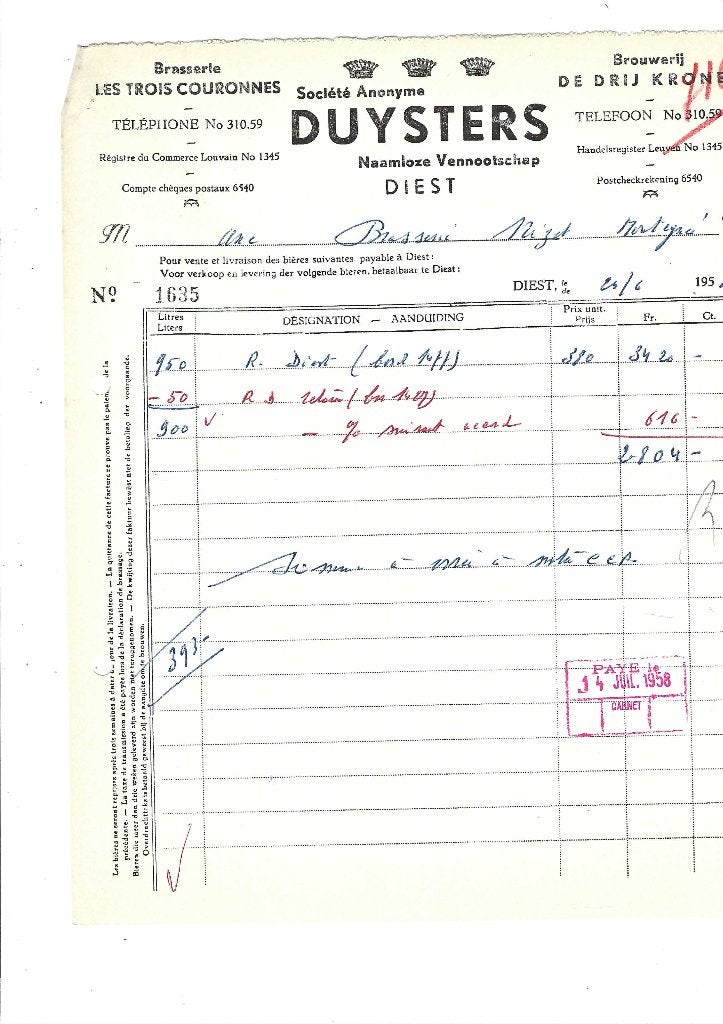 Brasserie
LES TROIS COURONNES
TÉLÉPHONE No 310.59
Régistre du Commerce Louvain No 1345
Compte chèques postaux 6540
Société Anonyme
DUYSTERS
Naamloze Vennootschap
DIEST
Brouwerij
DE DRIJ KRONE
TELEFOON No 310.59
Handelsregister Leuven No 1345
Postcheckrekening 6540
M Brasserie Nizet
Pour vente et livraison des bières suivantes, payable à Diest :
Voor verkoop en levering der volgende bieren, betaalbaar te Diest :
No 1635
DIEST, le
de 195
Litres
Liters
DÉSIGNATION — AANDUIDING
Prix unit.
Prijs
Fr.
Ct.
950 R. Diest 380 3420 -
- 50 R D retour
900 - % suivant accord 616 -
2804 -
à à
393-
PAYE le
14 JUIL. 1958
CARNET
Les bières ne seront reprises après trois semaines à dater du jour de la livraison. — La quittance de cette facture ne prouve pas le paiem. de la
précédente. — La taxe de transmission a été payée lors de la déclaration de brassage.
Bieren die meer dan drie weken geleverd zijn worden niet teruggenomen. — De kwijting dezer faktuur bewijst niet de betaling der voorgaande.
Overdrachttaks betaald geweest bij de aangifte om te brouwen.